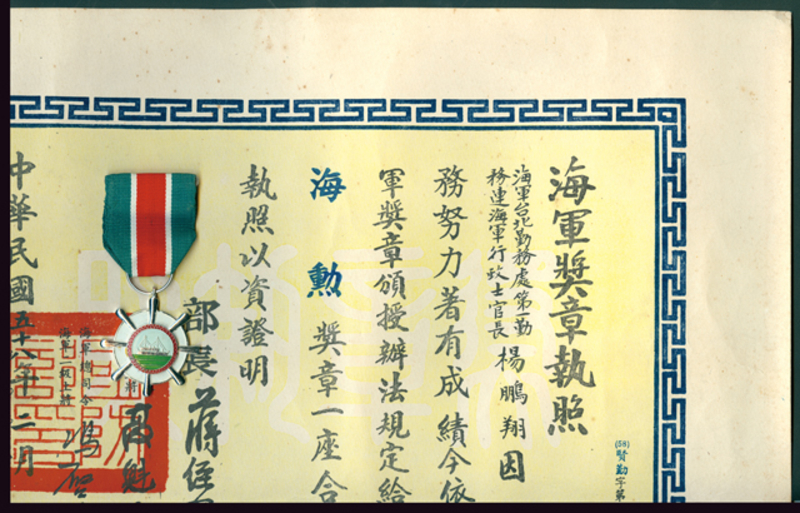 海軍獎章執照
海軍台北勤務處第一勤
務連海軍行政士官長
楊鵬翔因
務努力著有成績今依
軍獎章頒授辦法規定給
海勳獎章一座合
執照以資證明
部長蔣
海軍總司令
海軍二級上將馮啓
中華民國五十八年二月
(58)賢勤字第